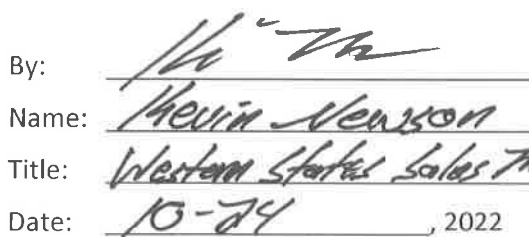 By:
Name: Kevin Newson
Title: Western States Sales
Date: 10-24, 2022